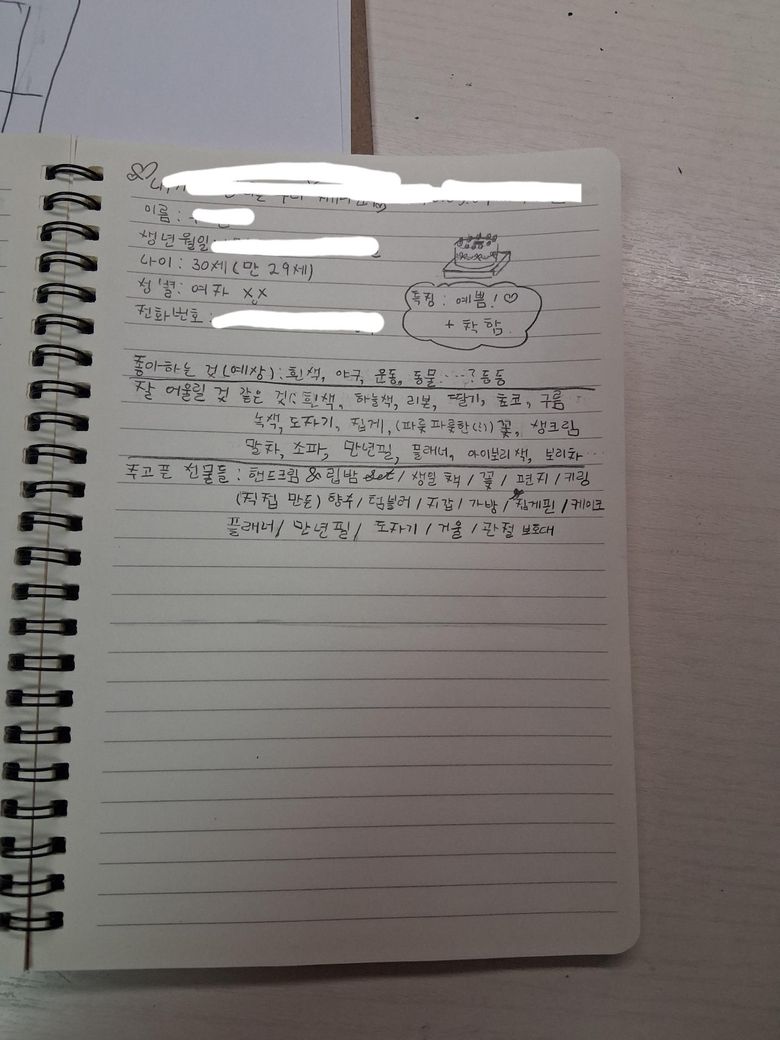 이름 :
생년월일 :
나이 : 30세 (만 29세)
성별 : 여자 X,X
전화번호 :
특징 : 예쁨! ♡
+ 착함.
좋아하는 것(예상) : 흰색, 야구, 운동, 동물 …? 등등
잘 어울릴 것 같은 것 : 흰색, 하늘색, 리본, 딸기, 초코, 구름
녹색, 도자기, 집게, (파릇파릇한(!)) 꽃, 생크림
말차, 소파, 만년필, 플래너, 아이보리색, 보리차 …
주고픈 선물들 : 핸드크림 & 립밤 set / 생일 책 / 꽃 / 편지 / 키링
(직접 만든) 향수 / 텀블러 / 지갑 / 가방 / 집게핀 / 케이크
플래너 / 만년필 / 도자기 / 거울 / 관절 보호대